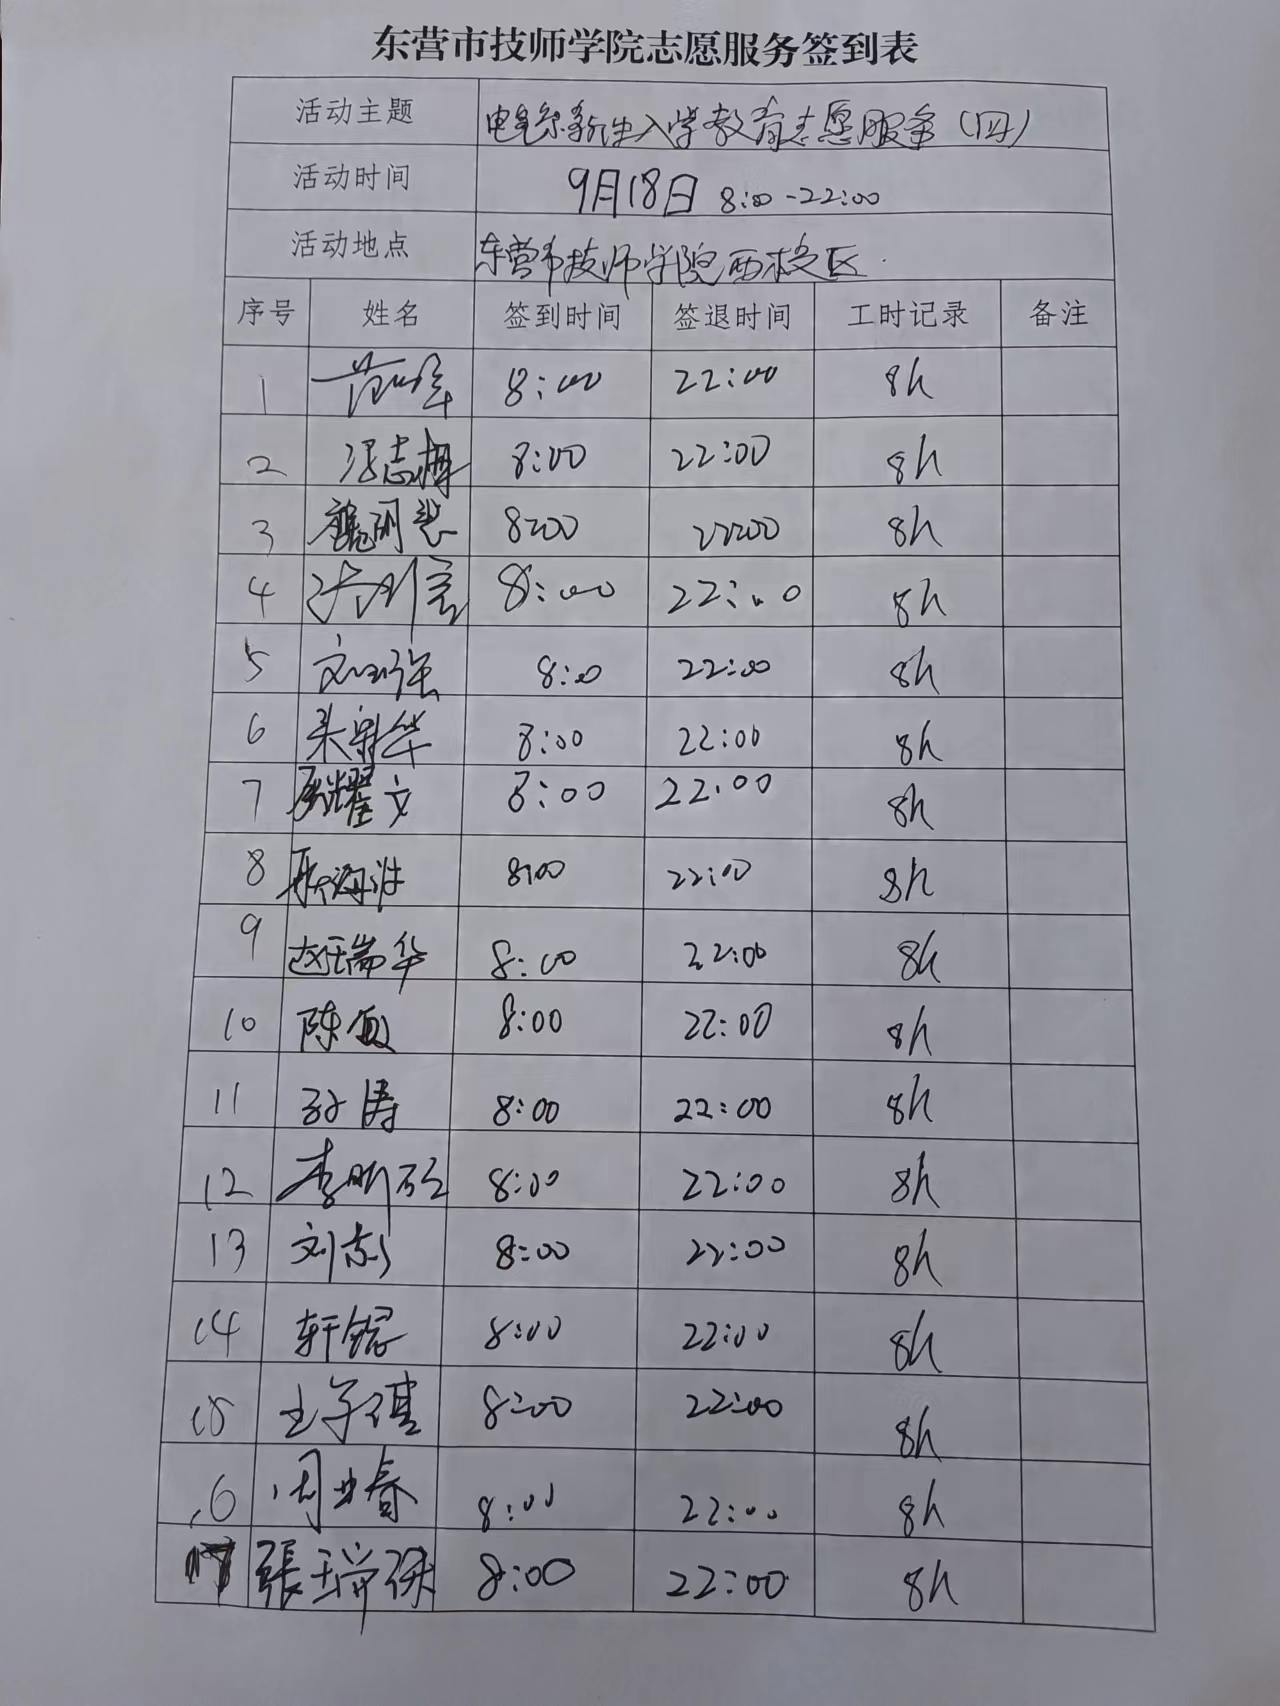 东营市技师学院志愿服务签到表
活动主题 电气系新生入学教育志愿服务(四)
活动时间 9月18日 8:00-22:00
活动地点 东营市技师学院西校区
序号 姓名 签到时间 签退时间 工时记录 备注
1 8:00 22:00 8h
2 冯志梅 8:00 22:00 8h
3 8:00 22:00 8h
4 8:00 22:00 8h
5 8:00 22:00 8h
6 8:00 22:00 8h
7 耀文 8:00 22:00 8h
8 8:00 22:00 8h
9 赵瑞华 8:00 22:00 8h
10 陈敏 8:00 22:00 8h
11 孙涛 8:00 22:00 8h
12 李明 8:00 22:00 8h
13 刘志 8:00 22:00 8h
14 8:00 22:00 8h
15 王子祺 8:00 22:00 8h
16 周世春 8:00 22:00 8h
17 張瑞 8:00 22:00 8h